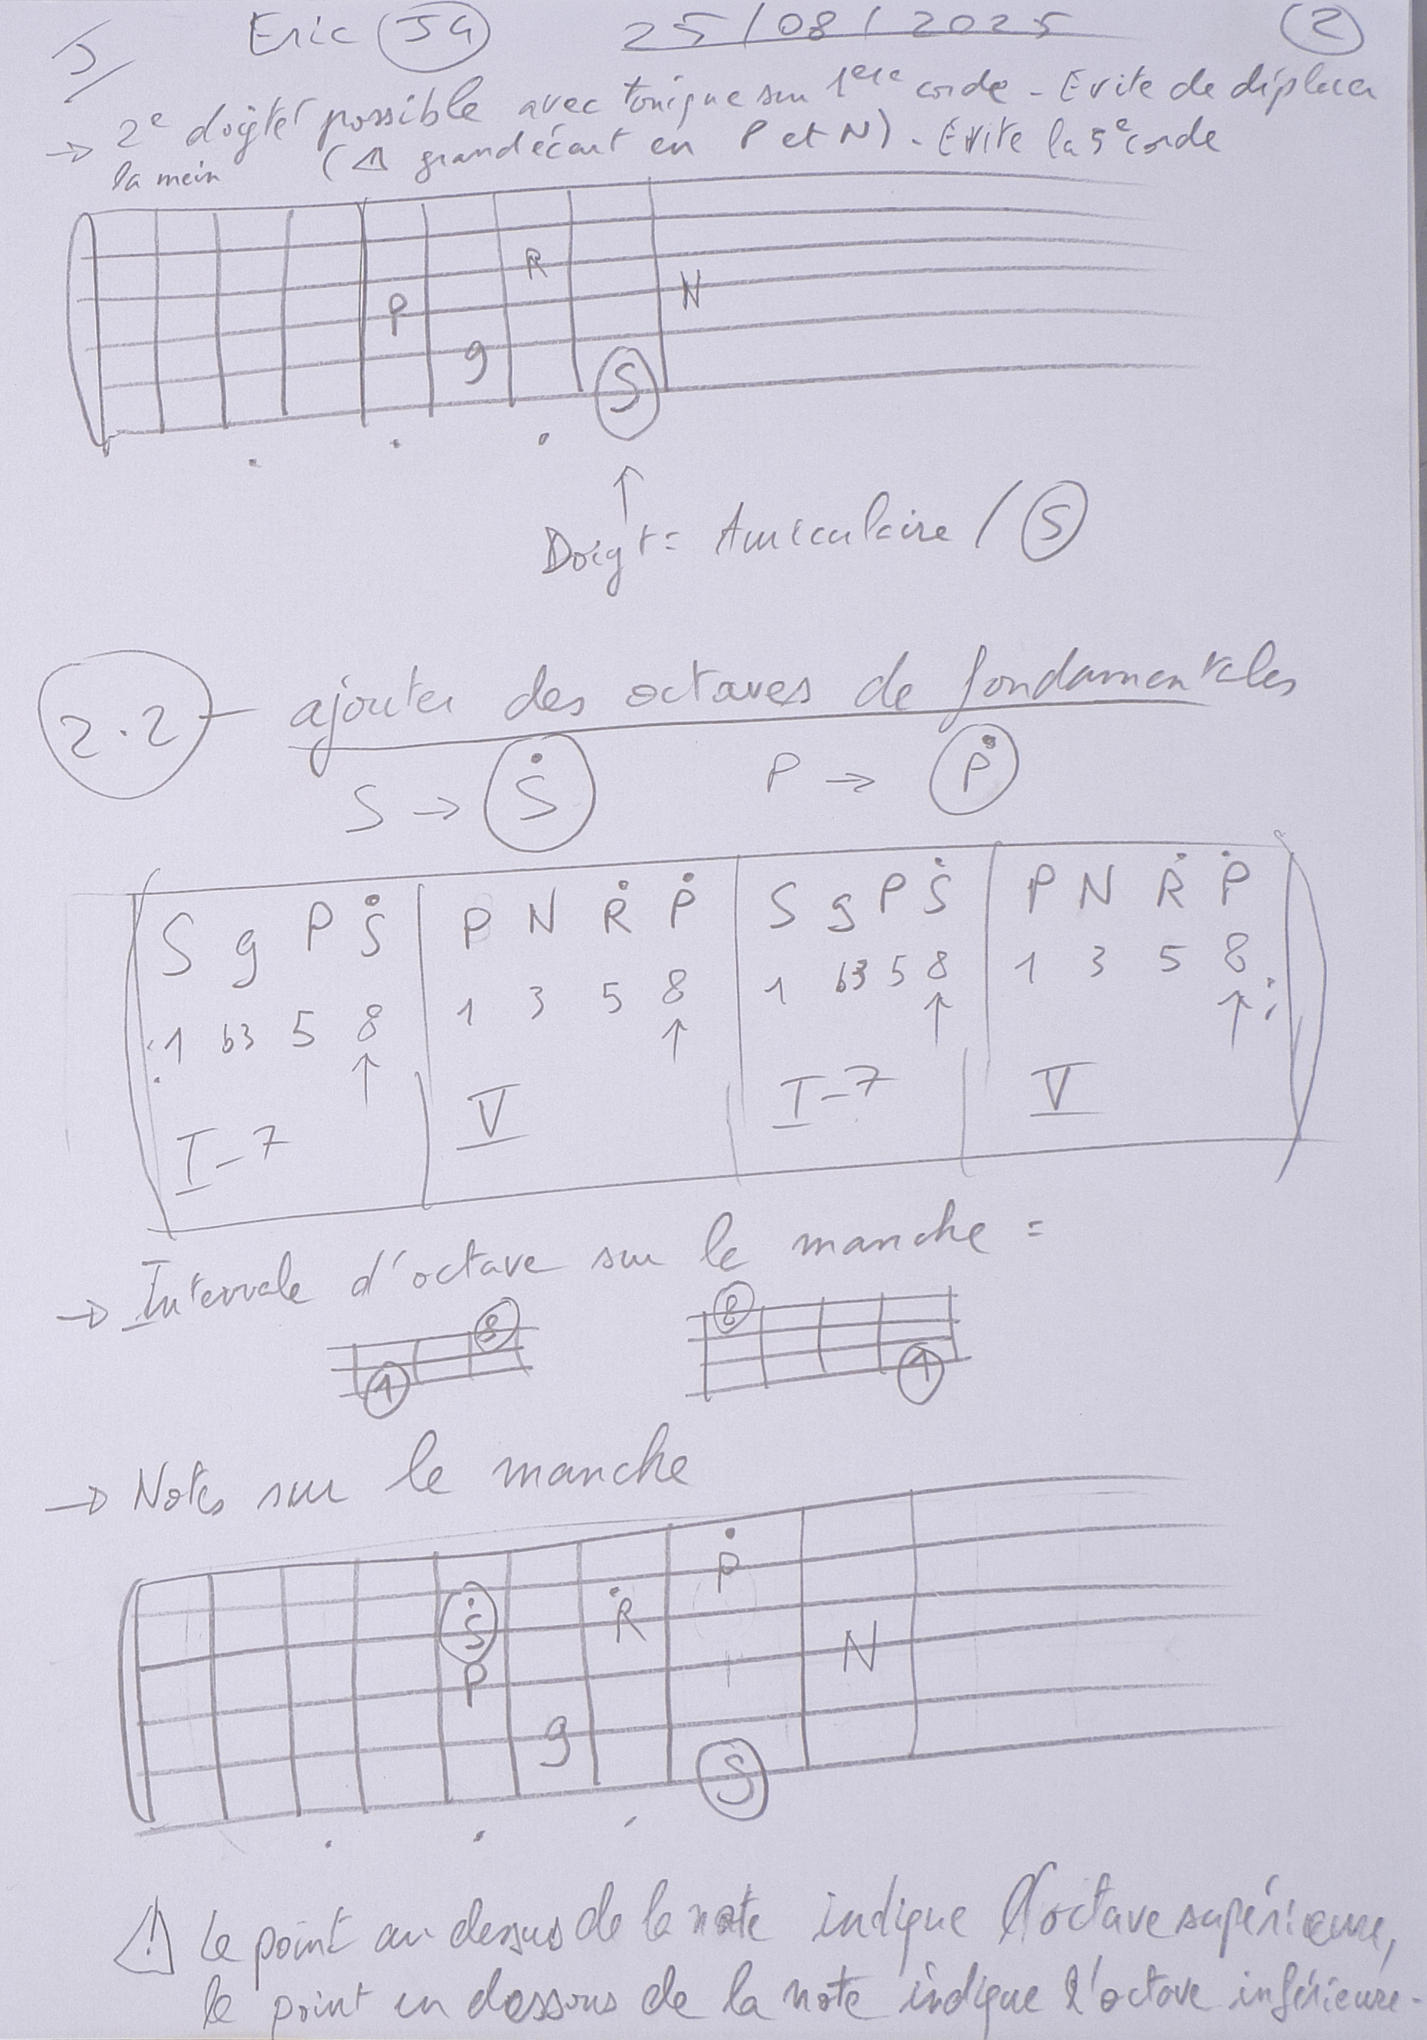 5/ Eric (54) 25/08/2025 (2)
→ 2e doigté possible avec tonique sur 1ere corde - Evite de déplacer
la mein (⚠ grand écart en P et N). Évite la 5e corde
R
P N
g
S
↑
Doigt = Auriculaire / S
2.2 - ajouter des octaves de fondamentales
S → Ṡ P → Ṗ
S g P Ṡ | P N Ṙ Ṗ | S g P Ṡ | P N Ṙ Ṗ
1 b3 5 8 | 1 3 5 8 | 1 b3 5 8 | 1 3 5 8
↑ ↑ ↑ ↑
I-7 | V | I-7 | V
→ Intervale d'octave sur le manche =
8 8
1 1
→ Notes sur le manche
Ṗ
Ṡ Ṙ
P N
g
S
⚠ Le point au dessus de la note indique l'octave supérieure,
le point en dessous de la note indique l'octave inférieure.